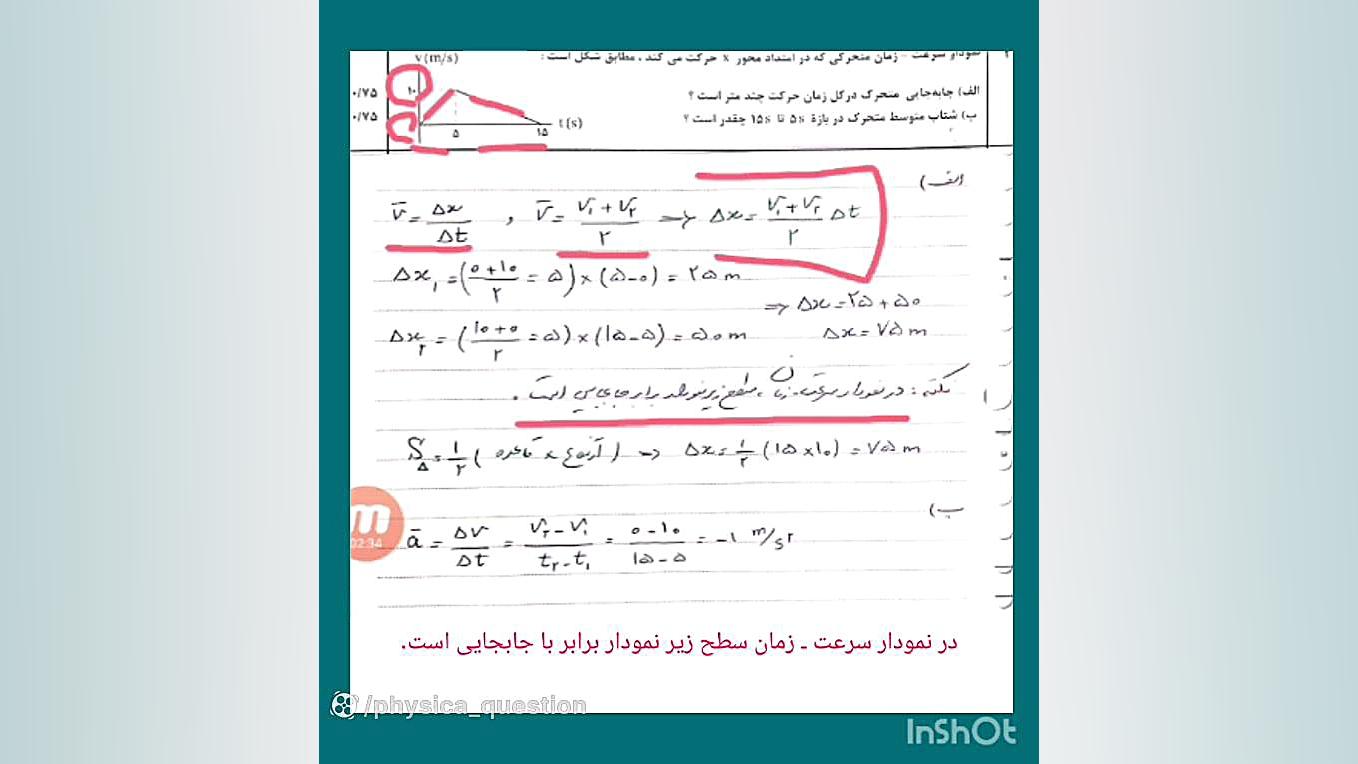 ۲ نمودار سرعت - زمان متحرکی که در امتداد محور x حرکت می کند ، مطابق شکل است :
v(m/s)
۱۰
۵
۱۵
t(s)
الف) جابه‌جایی متحرک در کل زمان حرکت چند متر است ؟
۰/۷۵
ب) شتاب متوسط متحرک در بازهٔ ۵s تا ۱۵s چقدر است ؟
۰/۷۵
الف)
v̄ = Δx/Δt , v̄ = (v۱ + v۲)/۲ ⇒ Δx = (v۱ + v۲)/۲ Δt
Δx۱ = ((۰+۱۰)/۲ = ۵) × (۵-۰) = ۲۵ m
⇒ Δx = ۲۵ + ۵۰
Δx۲ = ((۱۰+۰)/۲ = ۵) × (۱۵-۵) = ۵۰ m
Δx = ۷۵ m
نکته : در نمودار سرعت - زمان ، سطح زیر نمودار برابر جابجایی است .
S△ = ۱/۲ ( قاعده × ارتفاع ) → Δx = ۱/۲ (۱۵ × ۱۰) = ۷۵ m
ب)
ā = Δv/Δt = (v۲ - v۱)/(t۲ - t۱) = (۰ - ۱۰)/(۱۵ - ۵) = -۱ m/s۲
m
02:34
در نمودار سرعت ـ زمان سطح زیر نمودار برابر با جابجایی است.
/physica_question
InShOt